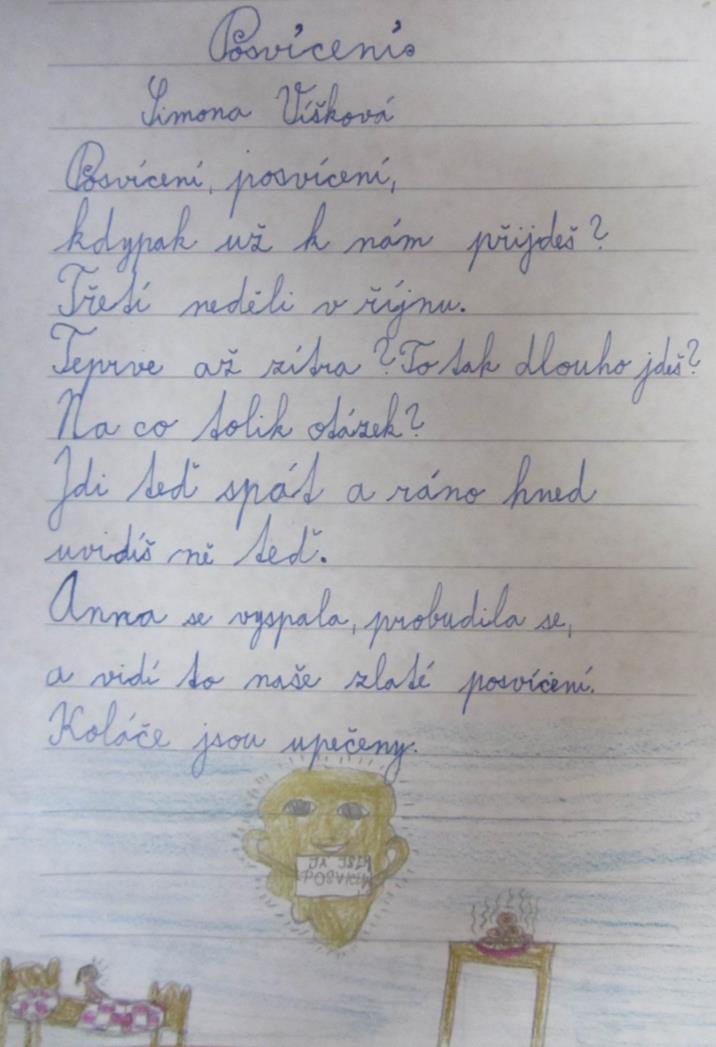 Posvícení.
Simona Víšková
Posvícení, posvícení,
kdypak už k nám přijdeš?
Třetí neděli v říjnu.
Teprve až zítra? To tak dlouho jdeš?
Na co tolik otázek?
Jdi teď spát a ráno hned
uvidíš ně teď.
Anna se vyspala, probudila se,
a vidí to naše zlaté posvícení.
Koláče jsou upečeny.
JÁ JSEM
POSVÍCENÍ